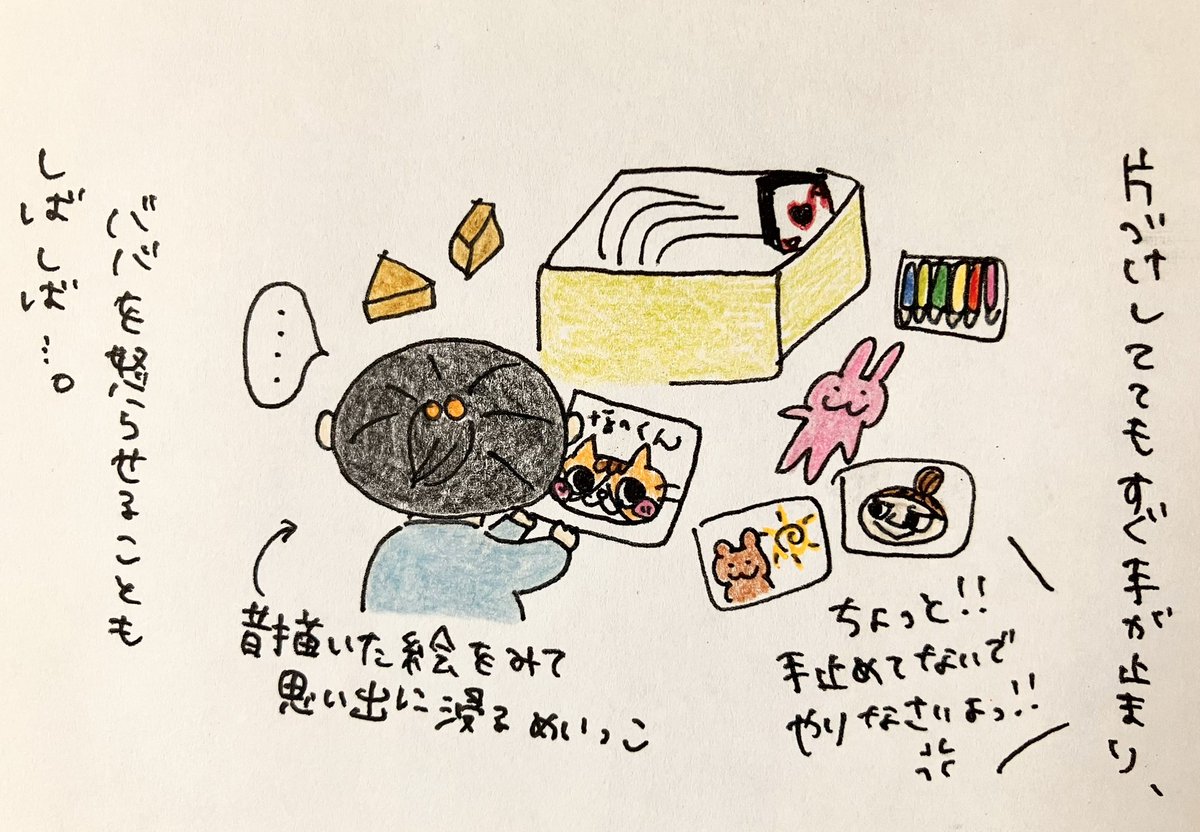 片づけしててもすぐ手が止まり、
ちょっと!!
手止めてないで
やりなさいよっ!!
・・・・
なっくん
昔描いた絵をみて
思い出に浸るめいっこ
ババを怒らせることも
しばしば…。